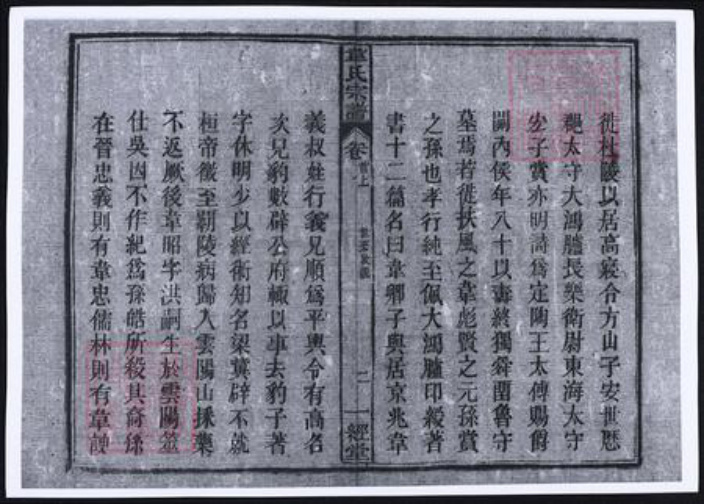 徙杜陵以居高寢令方山子安世歷
魏太守大鴻臚長樂衛尉東海太守
宏子賞亦明詩為定陶王太傅賜爵
關內侯年八十以壽終獨舜留魯守
墓焉若徙扶風之韋彪賢之元孫賞
之孫也孝行純至佩大鴻臚印綬著
書十二篇名曰韋卿子與居京兆韋
韋氏宗譜
卷首上
二
一經堂
義叔姓行義兄順為平輿令有高名
次兄豹數辟公府輒以事去豹子著
字休明少以經術知名梁冀辟不就
桓帝徵至霸陵病歸入雲陽山採藥
不返厥後韋昭字洪嗣生於雲陽筮
仕吳因不作紀為孫皓所殺其裔孫
在晉忠義則有韋忠儒林則有韋謏